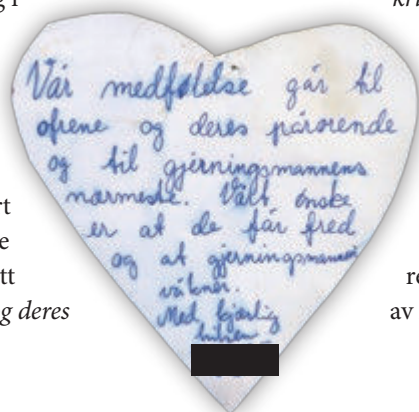 Vår medfølelse går til
ofrene og deres pårørende
og til gjerningsmannens
nærmeste. Vårt ønske
er at de får fred
og at gjerningsmannen
våkner.
Med kjærlig
hilsen
rt
e
tt
g deres
av